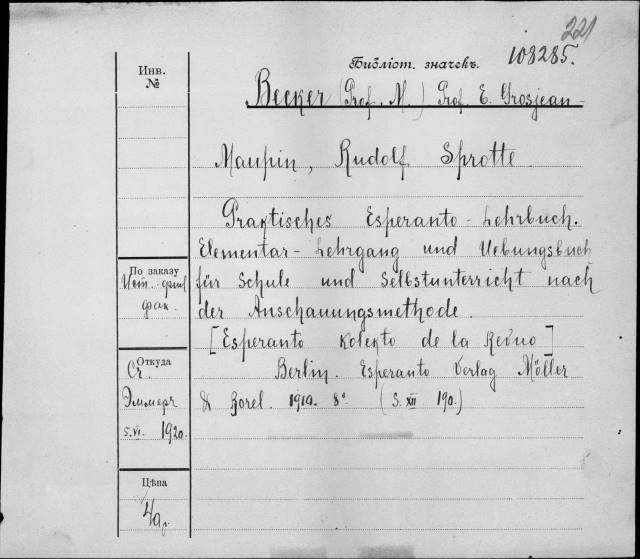 221
108285.
Библіот. значекъ.
Инв.
№
Becker (Prof. M.) Prof. E. Grosjean-
Maupin, Rudolf Sprotte
Praktisches Esperanto-Lehrbuch.
Elementar-Lehrgang und Uebungsbuch
für Schule und Selbstunterricht nach
der Anschauungsmethode.
[Esperanto Kolekto de la Revuo]
Berlin. Esperanto Verlag Möller
& Borel. 1910. 8° (S. XII 190.)
По заказу
Ист.-фил
фак.
Откуда
Сч.
5.VI. 1920.
Цѣна